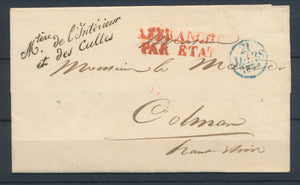 Mtère de l'Intérieur
et des Cultes
AFFRANCHI
PAR ETAT
Monsieur le Maire
Colmar
haut Rhin